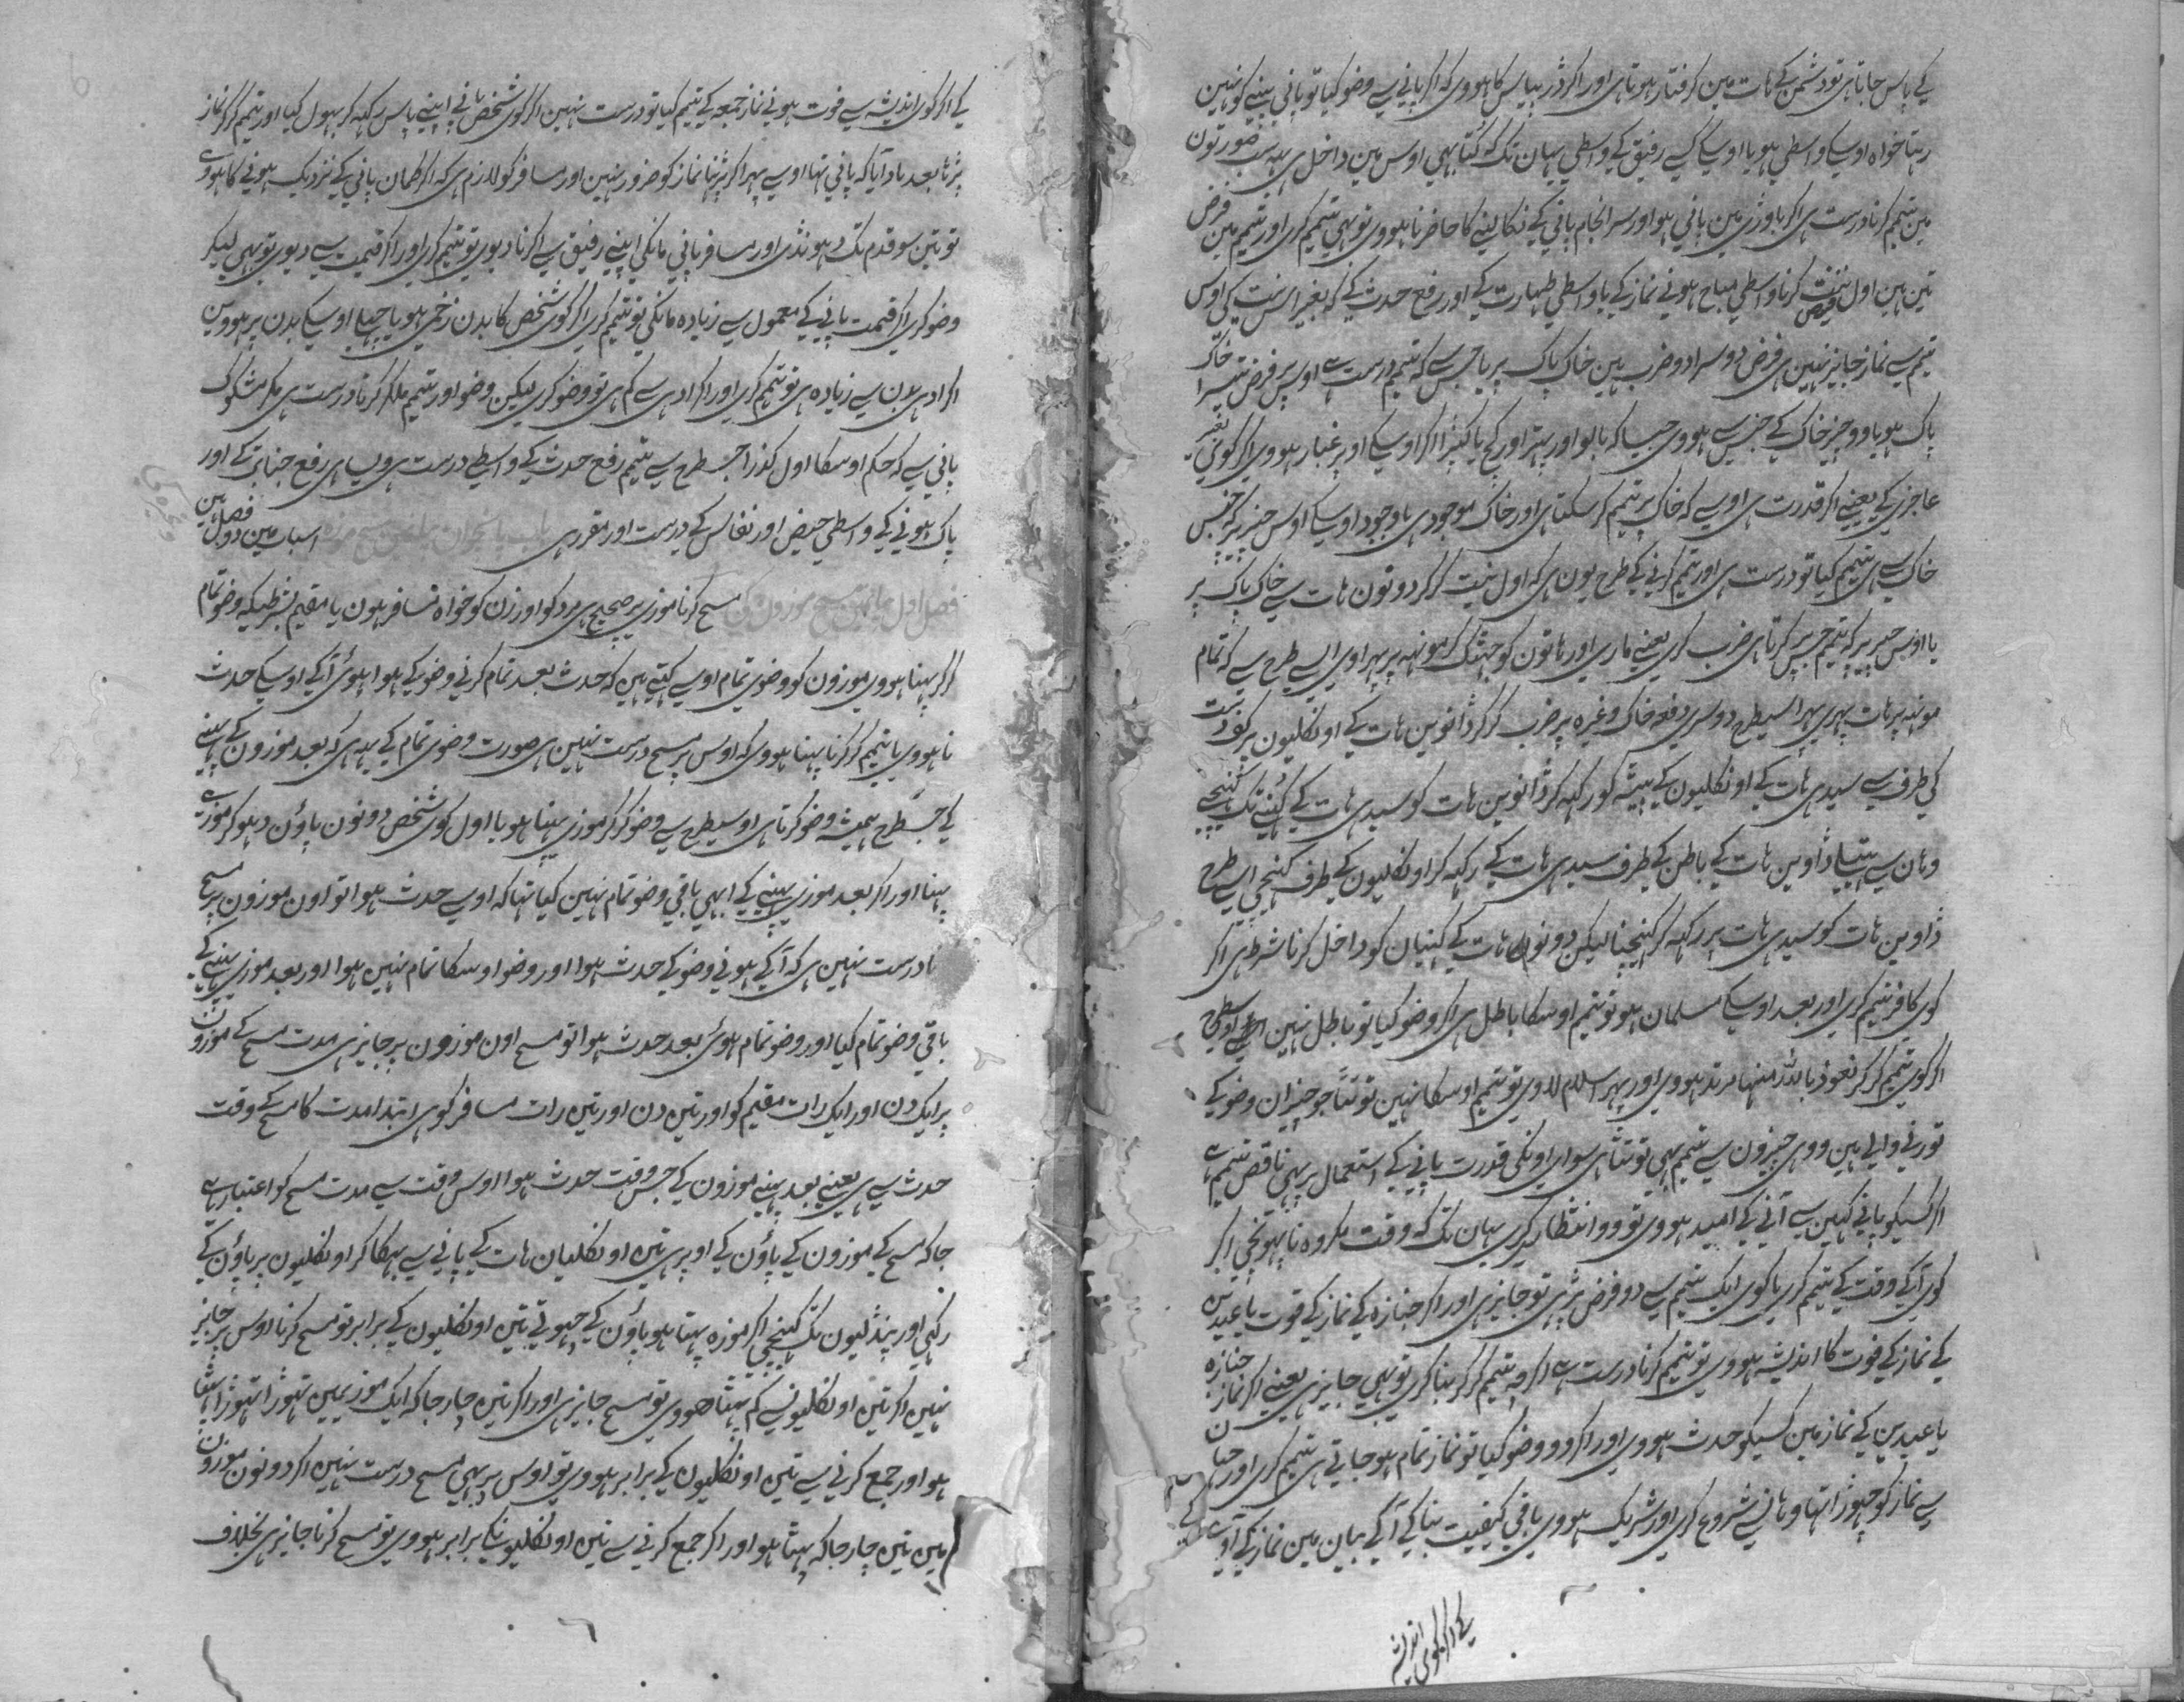 کے پاس جاتا ہی تو دشمن کے ہات مین کرفتار ہوتا ہی اور اکر ڈر پیاس کا ہووی کہ اکر پانے سے وضو کیا تو پانی پینے کو نہین
رہتا خواہ اوسکے واسطی ہو یا اوسکے رفیق کے واسطی یہان تک کہ کتّا بہی اوس مین داخل ہی یہ سب صورتون
مین تیمم کرنا درست ہی اکر باوڑی مین پانی ہو اور سر انجام پانی کے نکالنے کا حاضر نا ہووی تو بہی تیمم کری اور تیمم مین فرض
تین ہین اول نیّت کرنا واسطی مباح ہونی نماز کے یا واسطی طہارت کے اور رفع حدث کے کہ بغیر اس نیت کی اوس
تیمم سے نماز جایز نہین ہی فرض دوسرا دو ضرب ہین خاک پاک پر یا جس سے کہ تیمم درست ہے اوس پر فرض تیسرا خاک
پاک ہو یا وو چیز خاک کے جنس سے ہووی جیسا کہ بالو اور پہتر اور کچ یا کپڑا اکر اوسکے اوپر غبار ہووی اکر کوئی بغیر
عاجزی کے یعنے اکر قدرت ہی اوسے کہ خاک پر تیمم کر سکتا ہی اور خاک موجود ہی باوجود اوسکے اوس چیز پر کہ جنس
خاک سے ہی تیمم کیا تو درست ہی اور تیمم کرنی کے طرح یون ہی کہ اول نیت کرکر دونون ہات سے خاک پاک پر
یا اوس چیز پر کہ تیمم جس پر کرتا ہی ضرب کری یعنے ماری اور ہاتون کو جہٹک کر مونہہ پر پہراوی اسے طرح سے کہ تمام
مونہہ پر ہات پہری پہر اسیطرح دوسری دفعہ خاک وغیرہ پر ضرب کرکر ڈانوین ہات کے اونکلیون پر کف دست
کی طرف سے سیدی ہات کے اونکلیون کے پیٹہ کو رکہہ کر ڈانوین ہات کو سیدی ہات کے کہنے تک کہنچے
وہان سے ہتیلی ڈاوین ہات کے باطن کے طرف سیدی ہات کے رکہہ کر اونکلیون کے طرف کہنچی اسے طرح
ڈاوین ہات کو سیدی ہات پر رکہہ کر کہنچنا لیکن دونون ہات کے کہنیان کو داخل کرنا شرط ہی اکر
کوی کافر تیمم کری اور بعد اوسکے مسلمان ہو تو تیمم اوسکا باطل ہی اکر وضو کیا تو باطل نہین اسے واسطی
اکر کوی تیمم کرکر نعوذ باللہ منہا مرتد ہووی اور پہر اسلام لاوی تو تیمم اوسکا نہین توٹتا جو چیزان وضو کے
تورنی والی ہین ووہی چیزون سے تیمم بہی توٹتا ہی سوای اونکی قدرت پانی کے استعمال پر بہی ناقض تیمم ہے
اکر کسیکو پانی کہین سے آنی کے امید ہووی تو وو انتظار کری یہان تک کہ وقت مکروہ نا پہونچی اکر
کوی آکے وقت کے تیمم کری یا کوی ایک تیمم سے دو فرض پڑی تو جایز ہی اور اکر جنازہ کے نماز کے فوت یا عیدین
کے نماز کے فوت کا اندیشہ ہووی تو تیمم کرنا درست ہے اکرچہ تیمم کرکر بنا کری تو بہی جایز ہی یعنے اکر نماز جنازہ
یا عیدین کے نماز مین کسیکو حدث ہووی اور اکر وو وضو کیا تو نماز تمام ہو جاتی ہی تیمم کری اور جہان
سے نماز کو چہوڑا تہا وہان سے شروع کری اور شریک ہووی باقی کیفیت بنا کے آکے بیان مین نماز کے آوے
کے اکر کوی اندیشہ
کے اکر کوی اندیشہ سے فوت ہونی نماز جمعہ کے تیمم کیا تو درست نہین اکر کوی شخص پانے اپنے پاس رکہہ کر بہول کیا اور تیمم کرکر نماز
پڑنا بعد یاد آیا کہ پانی تہا اوسے پہر اکر پڑنا نماز کو ضرور نہین اور مسافر کو لازم ہی کہ اکر کمان پانی کے نزدیک ہونے کا ہووے
تو تین سو قدم تک ڈہونڈی اور مسافر پانی مانکی اپنے رفیق سے اکر نا دیوی تو تیمم کری اور اکر قیمت سے دیوی تو بہی لیکر
وضو کری اکر قیمت پانے کے معمول سے زیادہ مانکی تو تیمم کری اکر کوی شخص کا بدن زخمی ہو یا چیچک اوسکے بدن پر ہووین
اکر ادہی بدن سے زیادہ ہی تو تیمم کری اور اکر ادہی سے کم ہی تو وضو کری لیکن وضو اور تیمم ملکر کرنا درست ہی مکر مشکوک
پانی سے کہ حکم اوسکا اول کذرا جسطرح سے تیمم رفع حدث کے واسطے درست ہی ویسا ہی رفع جنابت کے اور
پاک ہونے کے واسطی حیض اور نفاس کے درست اور مقرر ہی اسباب مین دو فصل ہین
فصل اول مسح کرنا موزی پر صحیح ہی مرد کو اور زن کو خواہ مسافر ہون یا مقیم بشرطیکہ وضو تمام
کرکر پہنا ہووی موزون کو وضوی تمام اوسے کہتے ہین کہ حدث بعد تمام کرنے وضو کے ہوا ہوئی آکے اوسکے حدث
نا ہووی یا تیمم کرکر نا پہنا ہووی کہ اوس پر مسح درست نہین ہی صورت وضوی تمام کے یہہ ہی کہ بعد موزون کے پہنے
کے جسطرح ہمیشہ وضو کرتا ہی اوسیطرح سے وضو کرکر موزی پہنا ہو یا اول کوی شخص دونون پاؤن دہوکر موزے
پہنا اور اکر بعد موزی پہنے کے ابہی باقی وضو تمام نہین کیا تہا کہ اوسے حدث ہوا تو اون موزون پر مسح
نادرست نہین ہی کہ آکے ہونی وضو کے حدث ہوا اور وضو اوسکا تمام نہین ہوا اور بعد موزی پہنے کے
باقی وضو تمام کیا اور وضو تمام ہوئی بعد حدث ہوا تو مسح اون موزون پر جایز ہی مدت مسح کے موزون
پر ایک دن اور ایک رات مقیم کو اور تین دن اور تین رات مسافر کو ہی ابتدا مدت کا مسح کے وقت
حدث سے ہی یعنے بعد پہنے موزون کے جس وقت حدث ہوا اوس وقت سے مدت مسح کو اعتبار ہے
جاکہ مسح کے موزون کے پاؤن کے اوپر ہی تین اونکلیان ہات کے پانی سے بہکا کر اونکلیون پر پاؤن کے
رکہی اور پنڈلیون تک کہنچی اکر موزہ پہٹا ہو پاؤن کے چہوٹی تین اونکلیون کے برابر تو مسح کرنا اوس پر جایز
نہین اکر تین اونکلیون سے کم پہٹا ہووی تو مسح جایز ہی اور اکر تین چار جاکہ ایک موزیمین تہوڑا تہوڑا پہٹا
ہو اور جمع کرنی سے تین اونکلیون کے برابر ہووی تو اوس پر بہی مسح درست نہین اکر دونون موزون
مین تین چار جاکہ پہٹا ہو اور اکر جمع کرنے سے تین اونکلیونکے برابر ہووی تو مسح کرنا جایز ہی بخلاف